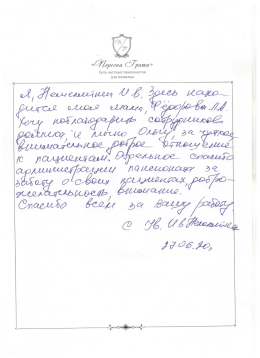 Сеть частных пансионатов
для пожилых
Я, И. В. Здесь нахо-
дится моя мама, Фёдорова Л.А.
Хочу поблагодарить сотрудников
и лично Ольгу, за чуткое
внимательное, доброе отношение
к пациентам. Отдельное спасибо
администрации пансионата за
заботу о своих пациентах, добро-
желательность, внимание.
Спасибо всем за Вашу работу
С Ув. И.В.
27.06.20г.